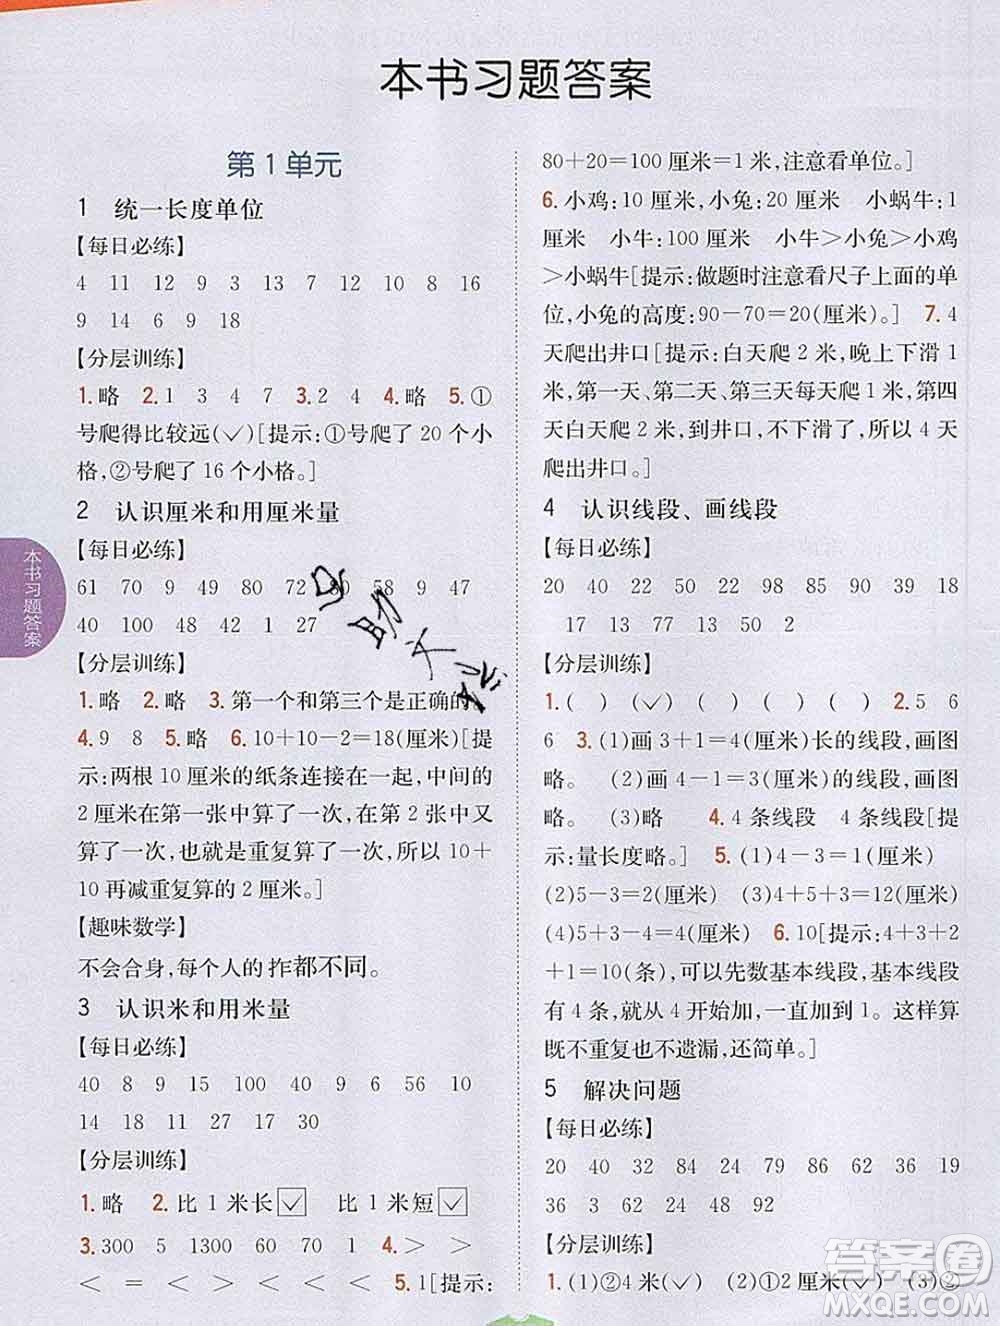 本书习题答案
第1单元
1 统一长度单位
【每日必练】
4 11 12 9 3 13 7 10 8 16
9 14 6 9 18
【分层训练】
1.略 2.1 3 4 7 3.2 4 4.略 5.①
号爬得比较远(✓)[提示:①号爬了 20 个小
格,②号爬了 16 个小格。]
2 认识厘米和用厘米量
【每日必练】
61 70 9 49 80 72 80 58 9 47
40 100 48 1 27
【分层训练】
1.略 2.略 3.第一个和第三个是正确的
4.9 8 5.略 6.10+10-2=18(厘米)[提
示:两根 10 厘米的纸条连接在一起,中间的
2 厘米在第一张中算了一次,在第 2 张中又
算了一次,也就是重复算了一次,所以 10+
10 再减重复算的 2 厘米。]
【趣味数学】
不会合身,每个人的拃都不同。
3 认识米和用米量
【每日必练】
40 8 9 15 100 40 9 6 56 10
14 18 11 27 17 30
【分层训练】
1.略 2.比 1 米长✓ 比 1 米短✓
3.300 5 1300 60 70 1 4.> >
< = < < < < 5.1[提示:
80+20=100 厘米=1 米,注意看单位。]
6.小鸡:10 厘米,小兔:20 厘米 小蜗牛:1
厘米 小牛:100 厘米 小牛>小兔>小鸡
>小蜗牛[提示:做题时注意看尺子上面的单
位,小兔的高度:90-70=20(厘米)。] 7.4
天爬出井口[提示:白天爬 2 米,晚上下滑 1
米,第一天、第二天、第三天每天爬 1 米,第四
天白天爬 2 米,到井口,不下滑了,所以 4 天
爬出井口。]
4 认识线段、画线段
【每日必练】
20 40 22 50 22 98 88 90 39 18
17 13 73 50 2
【分层训练】
1.( ) (✓) ( ) ( ) ( ) 2.5 6
6 3.(1)画 3+1=4(厘米)长的线段,画图
略。 (2)画 4-1=3(厘米)的线段,画图
略。 (3)略 4.4 条线段 4 条线段[提
示:量长度略。] 5.(1)4-3=1(厘米)
(2)5-3=2(厘米) (3)4+5+3=12(厘米)
(4)5+3-4=4(厘米) 6.10[提示:4+3+2
+1=10(条),可以先数基本线段,基本线段
有 4 条,就从 4 开始加,一直加到 1。这样算
既不重复也不遗漏,还简单。]
5 解决问题
【每日必练】
20 40 32 84 24 79 86 67 46 19
36 3 62 24 48 92
【分层训练】
1.(1)②4 米(✓) (2)①2 厘米(✓) (3)②
本书习题答案
答案圈
MXQE.COM